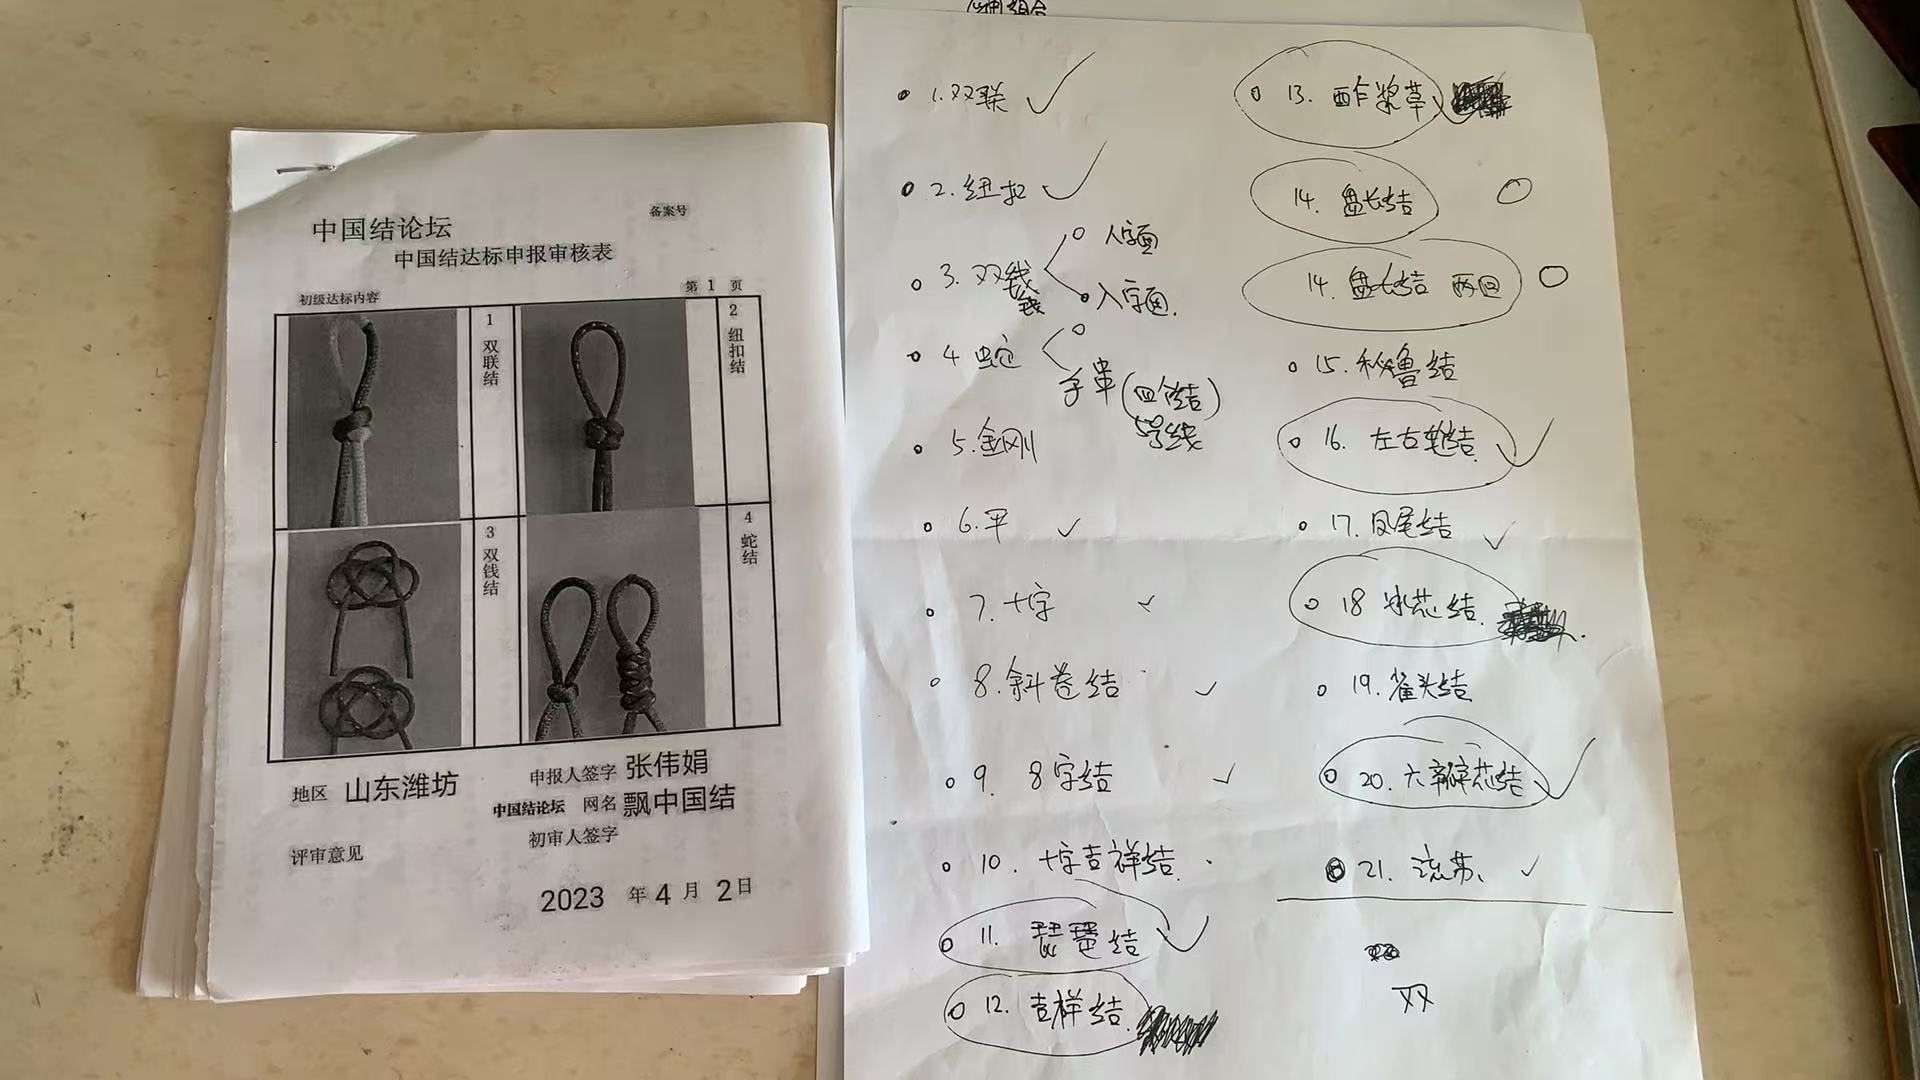 中国结论坛
备案号
中国结达标申报审核表
初级达标内容
第 1 页
1 双联结
2 纽扣结
3 双钱结
4 蛇结
地区 山东潍坊
申报人签字 张伟娟
中国结论坛 网名 飘中国结
初审人签字
评审意见
2023 年 4 月 2 日
1. 双联
2. 纽扣
3. 双线
钱
人字面
入字面.
4 蛇
手串(四个结)
5号线
5. 金刚
6. 平
7. 十字
8. 斜卷结
9. 8字结
10. 十字吉祥结
11. 琵琶结
12. 吉样结
13. 酢浆草
14. 盘长结
14. 盘长结 两回
15. 秘鲁结
16. 左右轮结
17. 凤尾结
18 冰花结
19. 雀头结
20. 六瓣花结
21. 流苏、
双